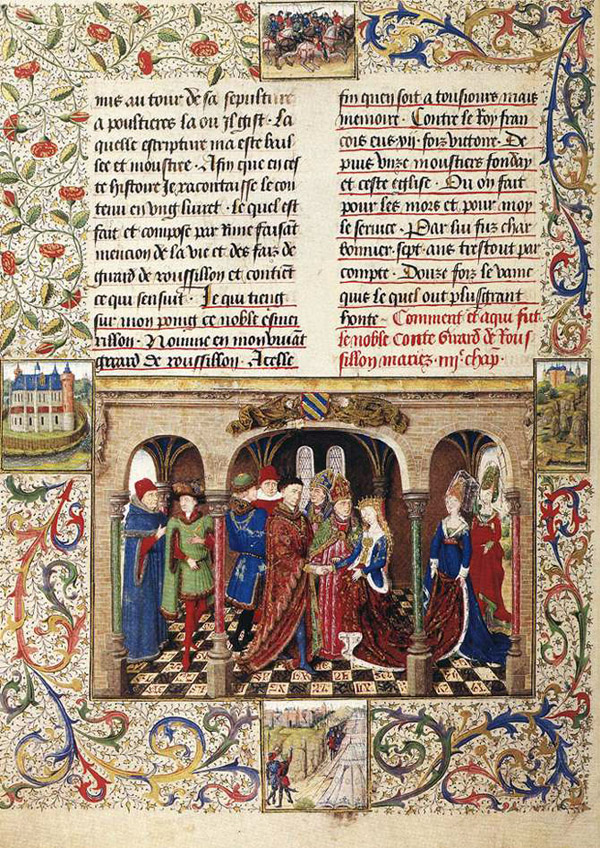 mis au tour de sa sepulture
a poultieres la ou Il gist · La
quelle escripture ma este bail
lee et moustree · Afin que en ces
te histoire Je racontaisse le con
tenu en vng liuret · le quel est
fait et compose par Rime faisāt
mencion de la vie et des faiz de
guard de roussillon et contiēt
ce qui sensuit · Je qui tieng
sur mon poing ce noble esmeu
rillon · Nomme en mon viuāt
gerard de roussillon · A celle
fin quen soit a tousiours mais
memoire · Contre le Roy fran
cois eus vii · foiz victoire · De
puis vnze moustiers fonday
et ceste eglise · Ou on fait
pour les mors et pour moy
le seruice · Par lui fuz char
bonnier · sept · ans trestout par
compte · Douze foiz le vainc
quis le quel out plus grant
honte · Comment et a qui fut
le noble conte Girard de Rous
sillon mariez · chap̄ ·